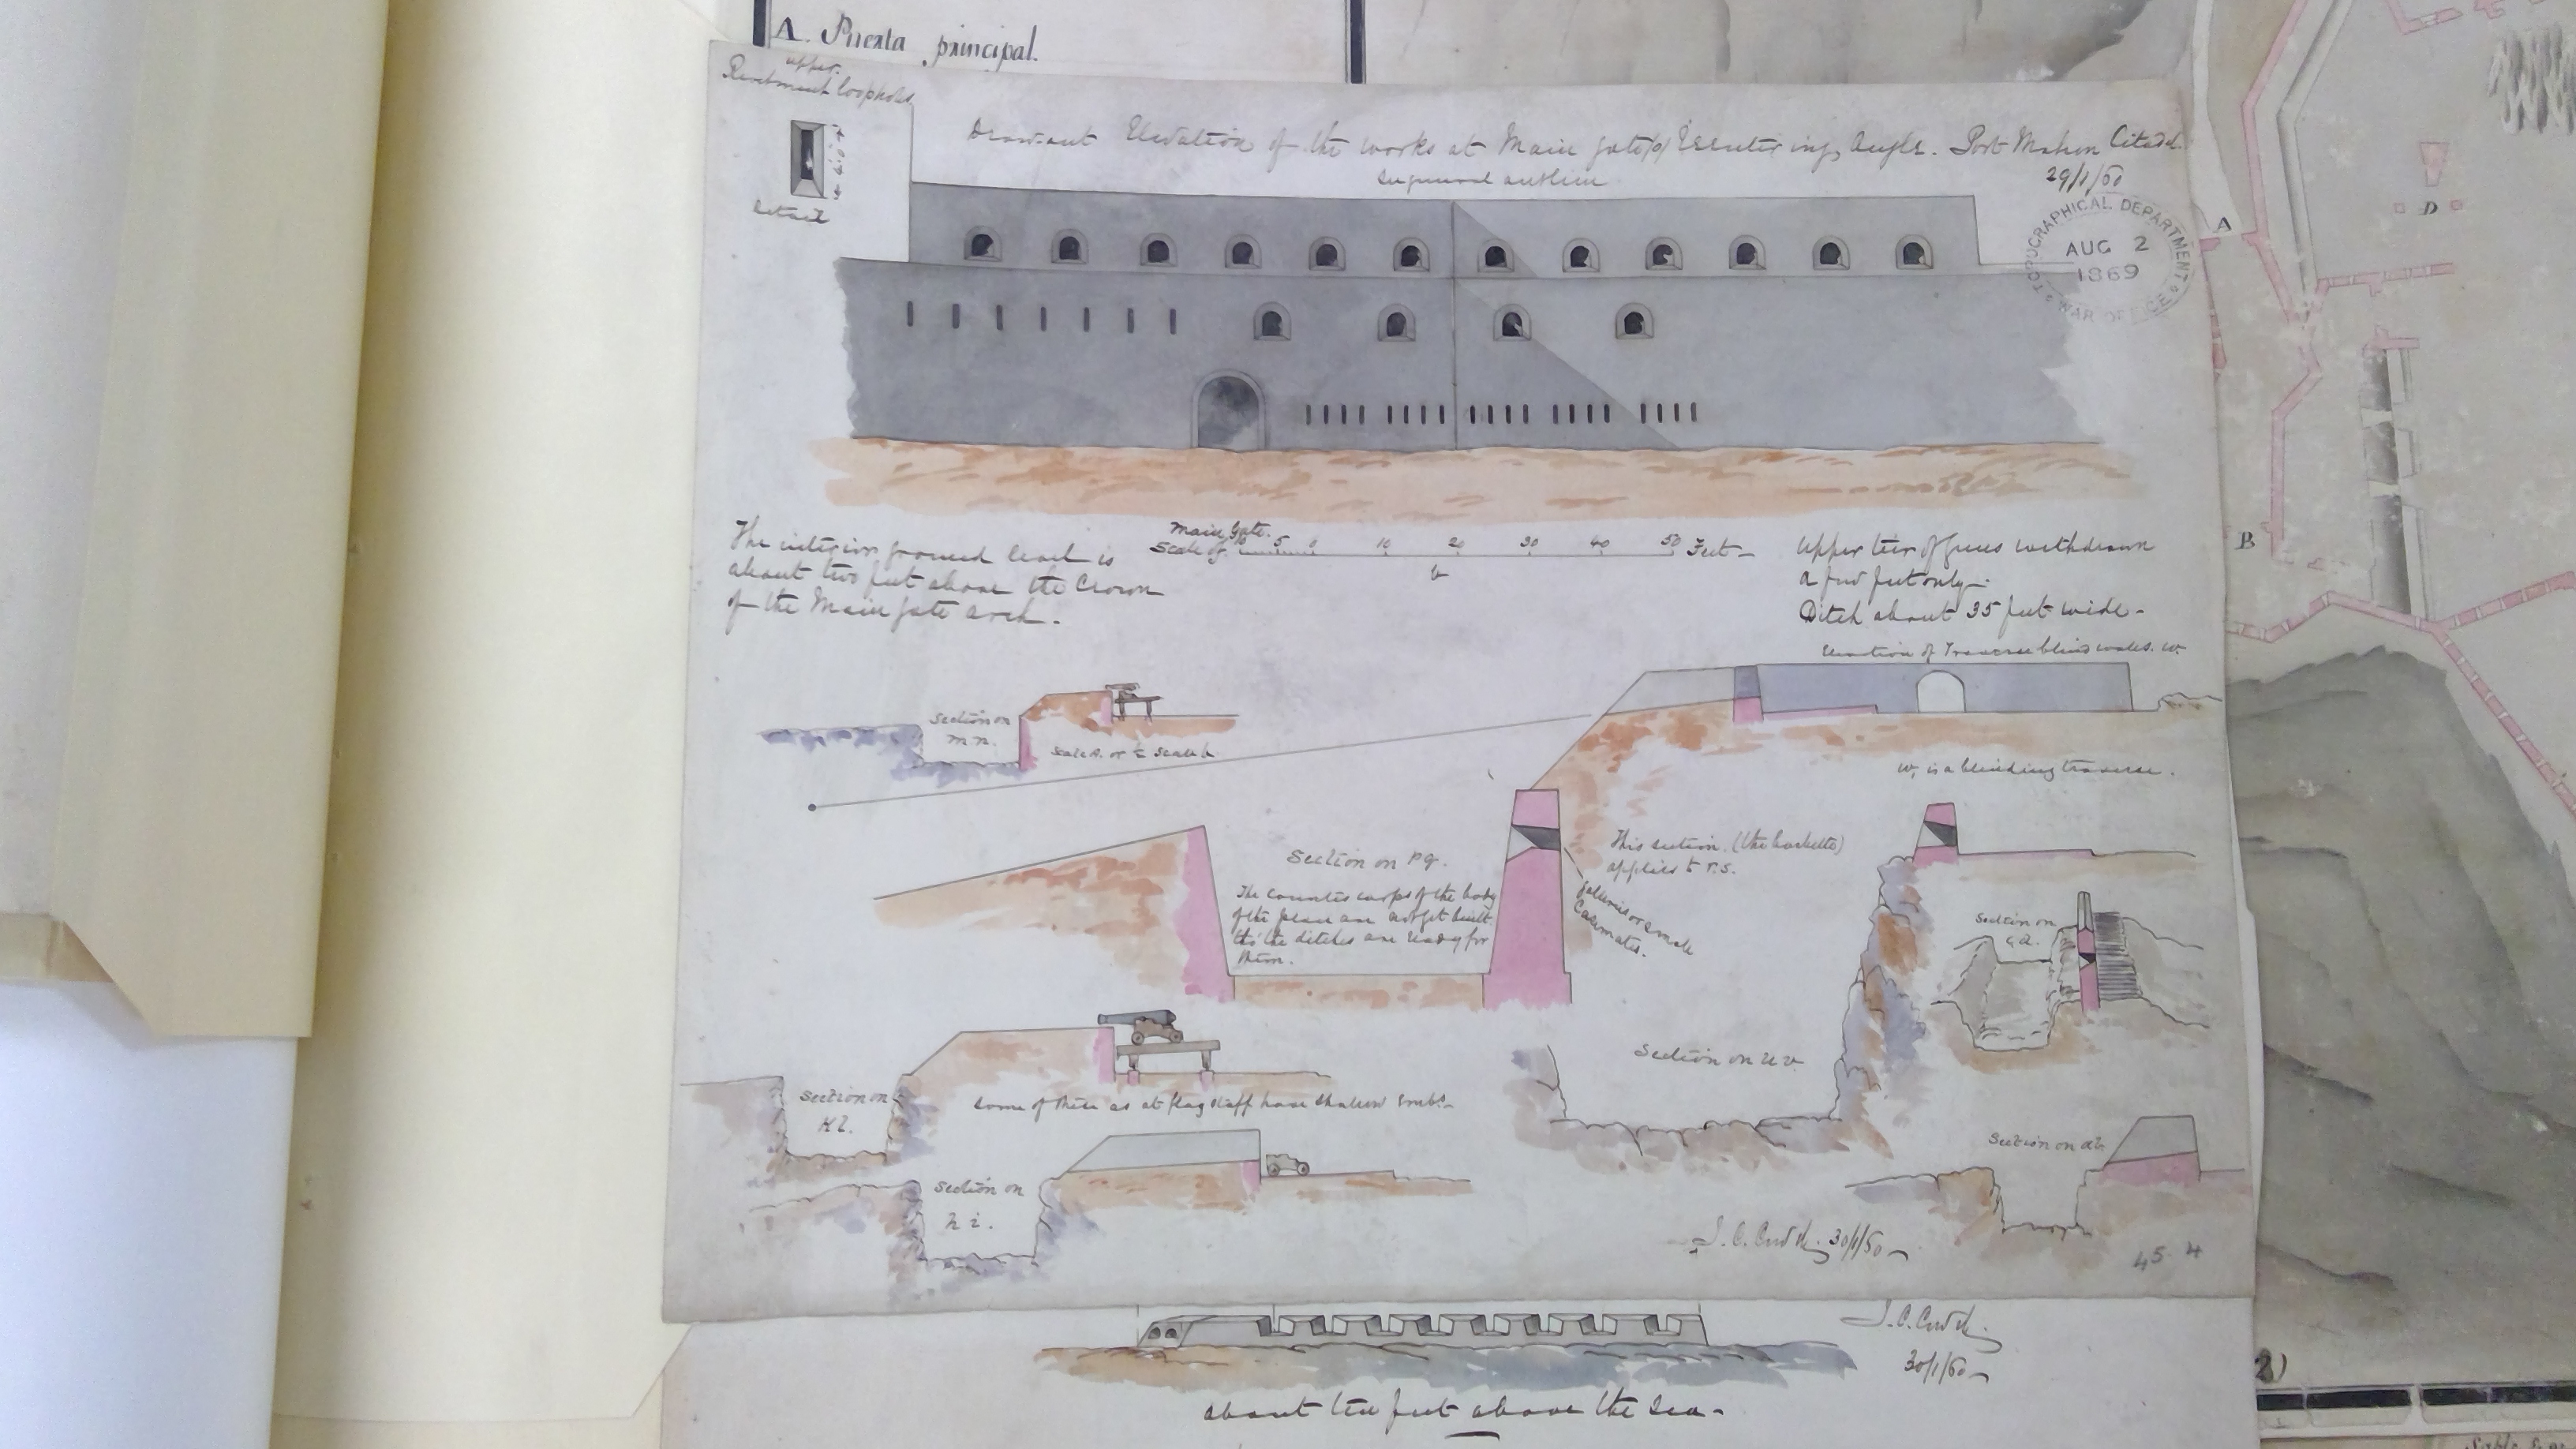 A. Puerta principal.
upper
Revetment loopholes
Detail
Drawn out Elevation of the works at Main gate Reentering Angle. Port Mahon Citadel.
in general outline
29/1/60
TOPOGRAPHICAL DEPARTMENT
AUG 2
1869
WAR OFFICE
A
D
B
The interior ground level is
about two feet above the Crown
of the Main gate arch.
Main Gate.
Scale of 10 5 0 10 20 30 40 50 Feet
b
Upper tier of guns withdrawn
a few feet only.
Ditch about 35 feet wide.
Elevation of Traverse blind walls. w.
Section on
m n.
Scale A. or ½ Scale b
w, is a blinding traverse.
Section on p q.
The counter scarps of the body
of the place are not yet built
tho' the ditches are ready for
them.
This section. (the
applies to r.s.
galleries or small
Casemates.
Section on
Section on
K l.
Some of these as at flagstaff have shallow embs.
Section on u v
Section on
h i.
Section on ab
J. C. 30/1/60
45 4
J. C.
30/1/60
about ten feet above the sea.
2)